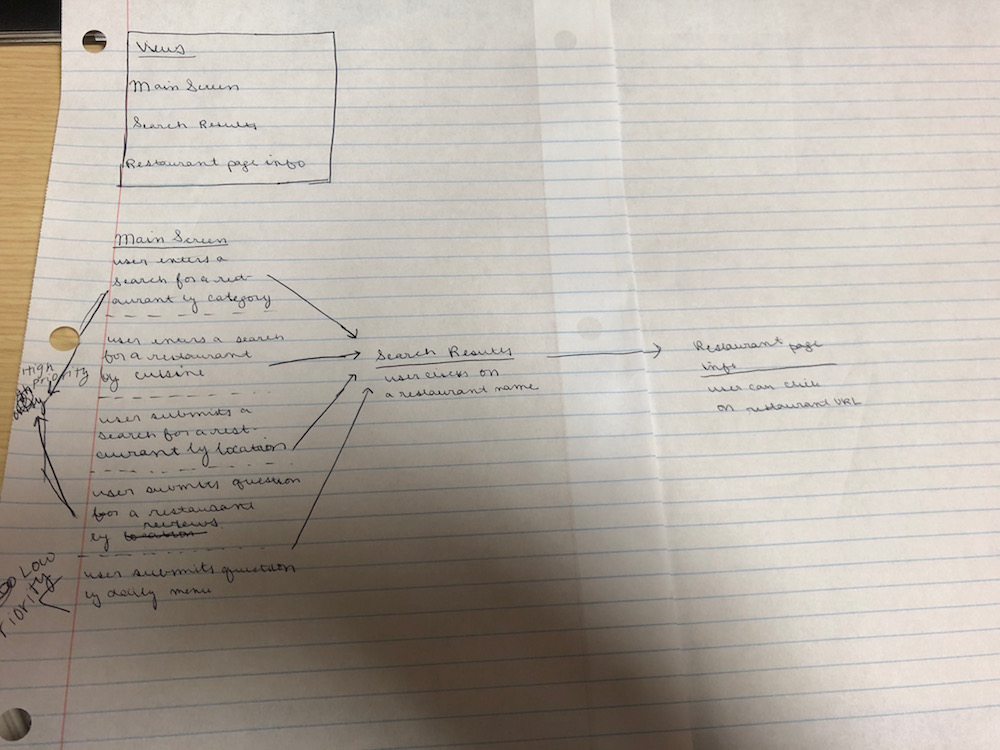 Views
Main Screen
Search Results
Restaurant page info
Main Screen
user enters a
search for a rest-
aurant by category
user enters a search
for a restaurant
by cuisine
High
Priority
user submits a
search for a rest-
aurant by location
user submits question
for a restaurant
reviews
by location
Low
Priority
user submits question
by daily menu
Search Results
user clicks on
a restaurant name
Restaurant page
info
user can click
on restaurant URL